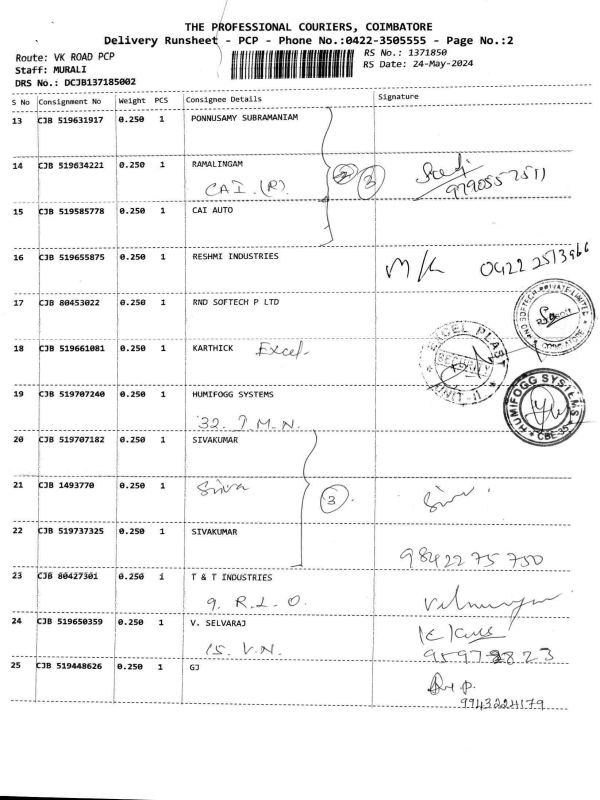 THE PROFESSIONAL COURIERS, COIMBATORE
Delivery Runsheet - PCP - Phone No.:0422-3505555 - Page No.:2
Route: VK ROAD PCP
RS No.: 1371850
Staff: MURALI
RS Date: 24-May-2024
DRS No.: DCJB137185002
S No Consignment No Weight PCS Consignee Details Signature
13 CJB 519631917 0.250 1 PONNUSAMY SUBRAMANIAM
14 CJB 519634221 0.250 1 RAMALINGAM
CAI (R) 3
9790557511
15 CJB 519585778 0.250 1 CAI AUTO
16 CJB 519655875 0.250 1 RESHMI INDUSTRIES
0422 2513966
17 CJB 80453022 0.250 1 RND SOFTECH P LTD
18 CJB 519661081 0.250 1 KARTHICK Excel
EXCEL PLAST
SECURITY
UNIT-II
19 CJB 519707240 0.250 1 HUMIFOGG SYSTEMS
HUMIFOGG SYSTEMS
CBE-35
32. T.M.N.
20 CJB 519707182 0.250 1 SIVAKUMAR
21 CJB 1493770 0.250 1 Siva 3
22 CJB 519737325 0.250 1 SIVAKUMAR
9842275750
23 CJB 80427301 0.250 1 T & T INDUSTRIES
9. R.L.O.
24 CJB 519650359 0.250 1 V. SELVARAJ
15. V.N.
25 CJB 519448626 0.250 1 GJ
9943224179